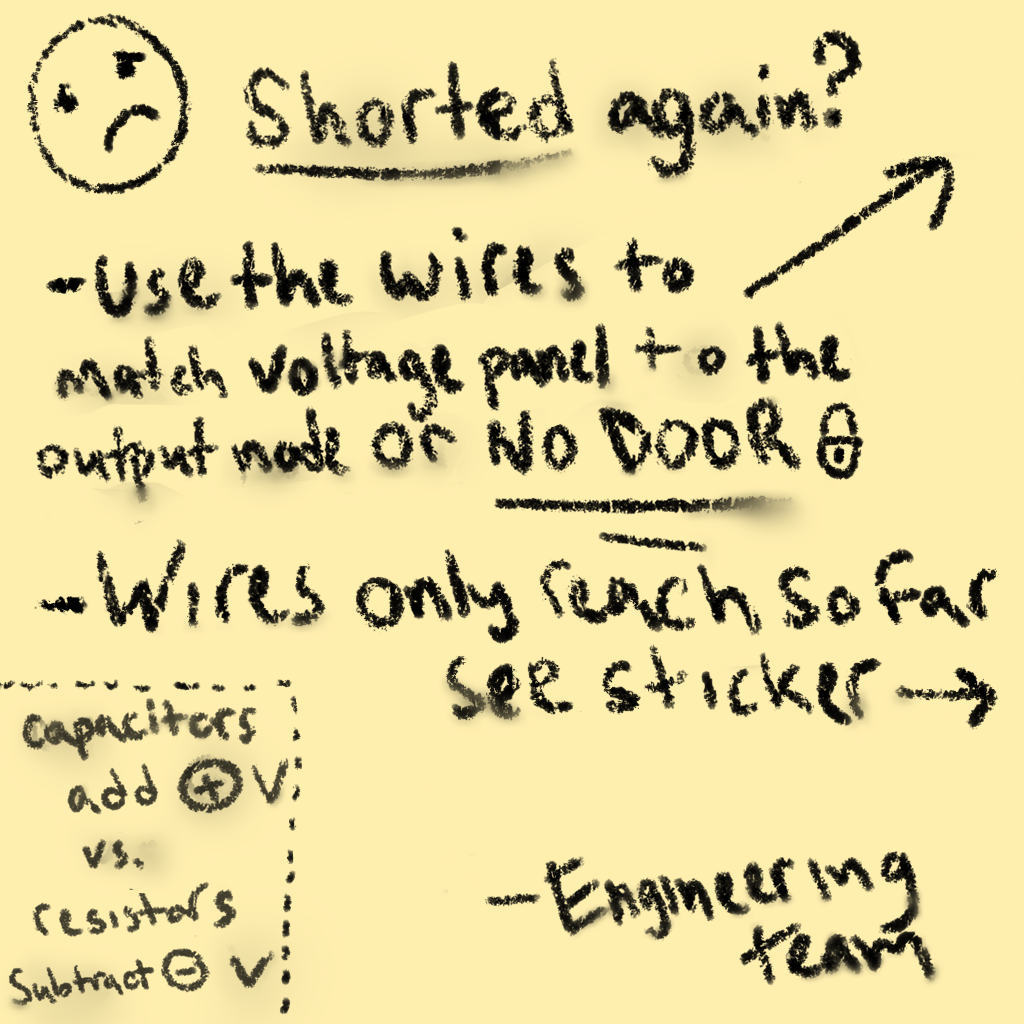 Shorted again?
- Use the wires to
match voltage panel to the
output node or NO DOOR
- Wires only reach so far
see sticker →
capacitors
add ⊕ V
vs.
resistors
Subtract ⊖ V
- Engineering
team